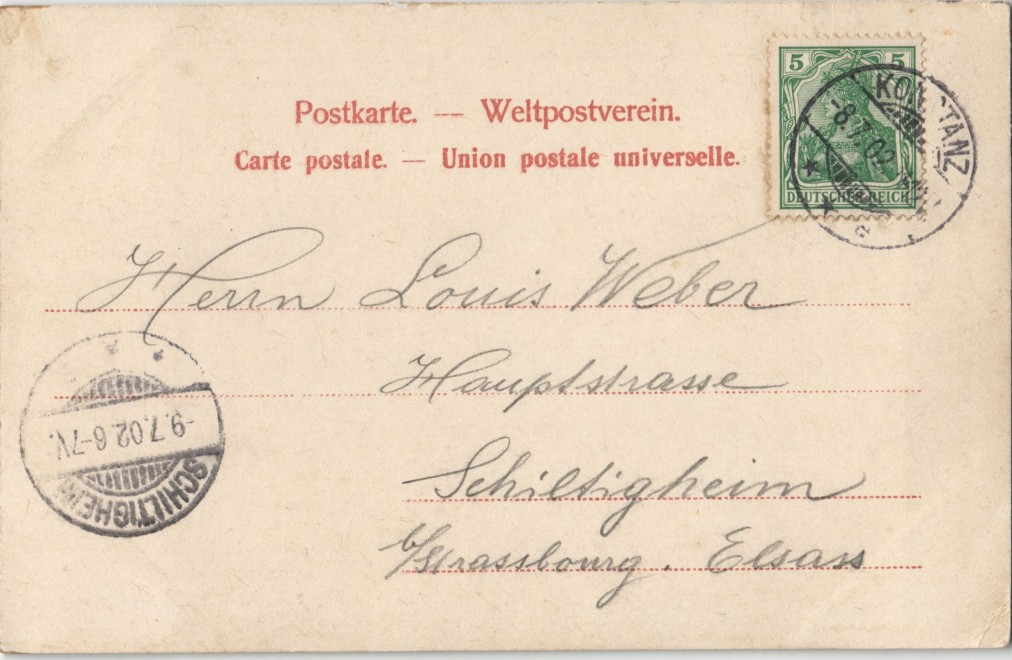 Postkarte. — Weltpostverein.
Carte postale. — Union postale universelle.
5 5
DEUTSCHES REICH
KONSTANZ
-8.7.02
Herrn Louis Weber
Hauptstrasse
Schiltigheim
b/Strassbourg. Elsass
SCHILTIGHEIM
-9.7.02.6-7V.